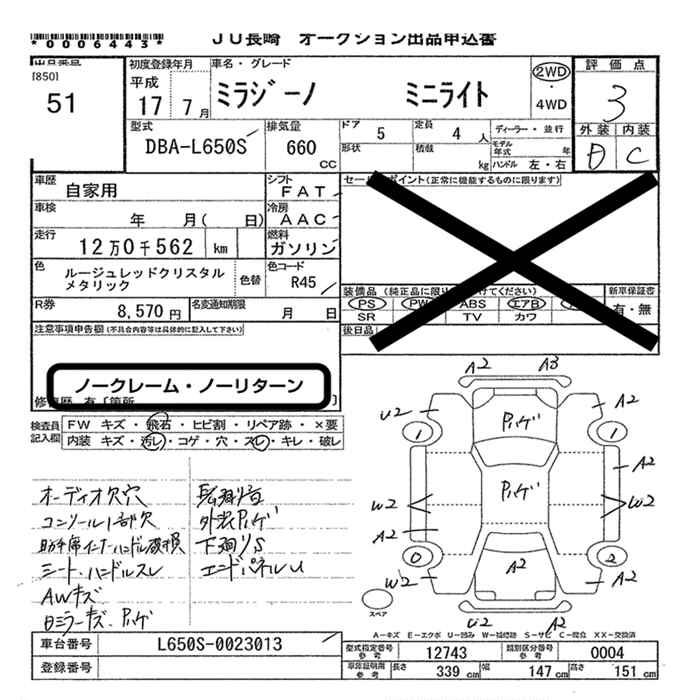 *0006443*
JU長崎 オークション出品申込書
出品番号
[850]
51
初度登録年月
平成
17 7月
車名・グレード
ミラジーノ ミニライト
2WD
・
4WD
評価点
3
外装 内装
D C
型式
DBA-L650S
排気量
660
CC
ドア 5
定員 4 人
ディーラー・並行
形状
積載 kg
モデル年式 年
ハンドル 左・右
車歴
自家用
シフト
FAT
車検
年 月( 日)
冷房
AAC
走行
12万0千562 km
燃料
ガソリン
色
ルージュレッドクリスタル
メタリック
色替
色コード
R45
R券
8,570 円
名変通知期限
月 日
セールスポイント(正常に機能するものに限ります)
装備品(純正品に限り○をつけてください)
新車保証書
PS PW ABS エアB
SR TV カワ
有・無
後日品
注意事項申告欄(不具合内容等は具体的に記入して下さい)
ノークレーム・ノーリターン
修復歴 有[箇所 ]
検査員
記入欄
FW キズ・飛石・ヒビ割・リペア跡・×要
内装 キズ・汚レ・コゲ・穴・スレ・キレ・破レ
オーディオ欠穴
コンソール1部欠
助手席インナーハンドル破損
シート、ハンドルスレ
AWキズ
Dミラーキズ、ハゲ
外装ハゲ
下廻りS
エンドパネルU
A2 A3
U2 ハゲ A2
1 1
ハゲ A2
W2 W2
A2
0 2
W2 A2 A2
スペア
U2 A2
A-キズ E-エクボ U-凹み W-補修跡 S-サビ C-腐食 XX-交換済
車台番号
L650S-0023013
登録番号
型式指定番号
参考
12743
類別区分番号
参考
0004
車車証明用
参考
長さ 339 cm
幅 147 cm
高さ 151 cm